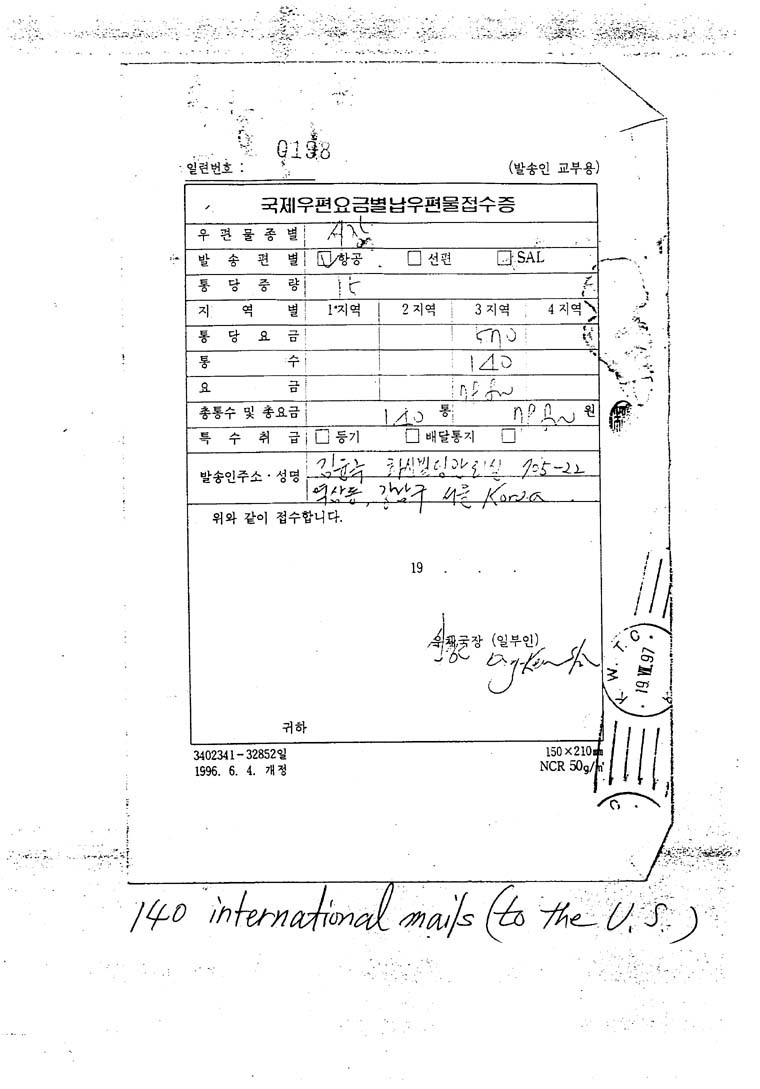 0198
일련번호 :
(발송인 교부용)
국제우편요금별납우편물접수증
우편물종별
발송편별 항공 선편 SAL
통당중량
지역별 1지역 2지역 3지역 4지역
통당요금
통수 140
요금
총통수 및 총요금 140 통 원
특수취급 등기 배달통지
발송인주소·성명 705-22
역삼동, 강남구 서울 Korea
위와 같이 접수합니다.
19 . . .
우체국장 (일부인)
K.W.T.C.
19.VII.97
귀하
3402341-32852일
1996. 6. 4. 개정
150×210㎜
NCR 50g/㎡
140 international mails (to the U.S.)